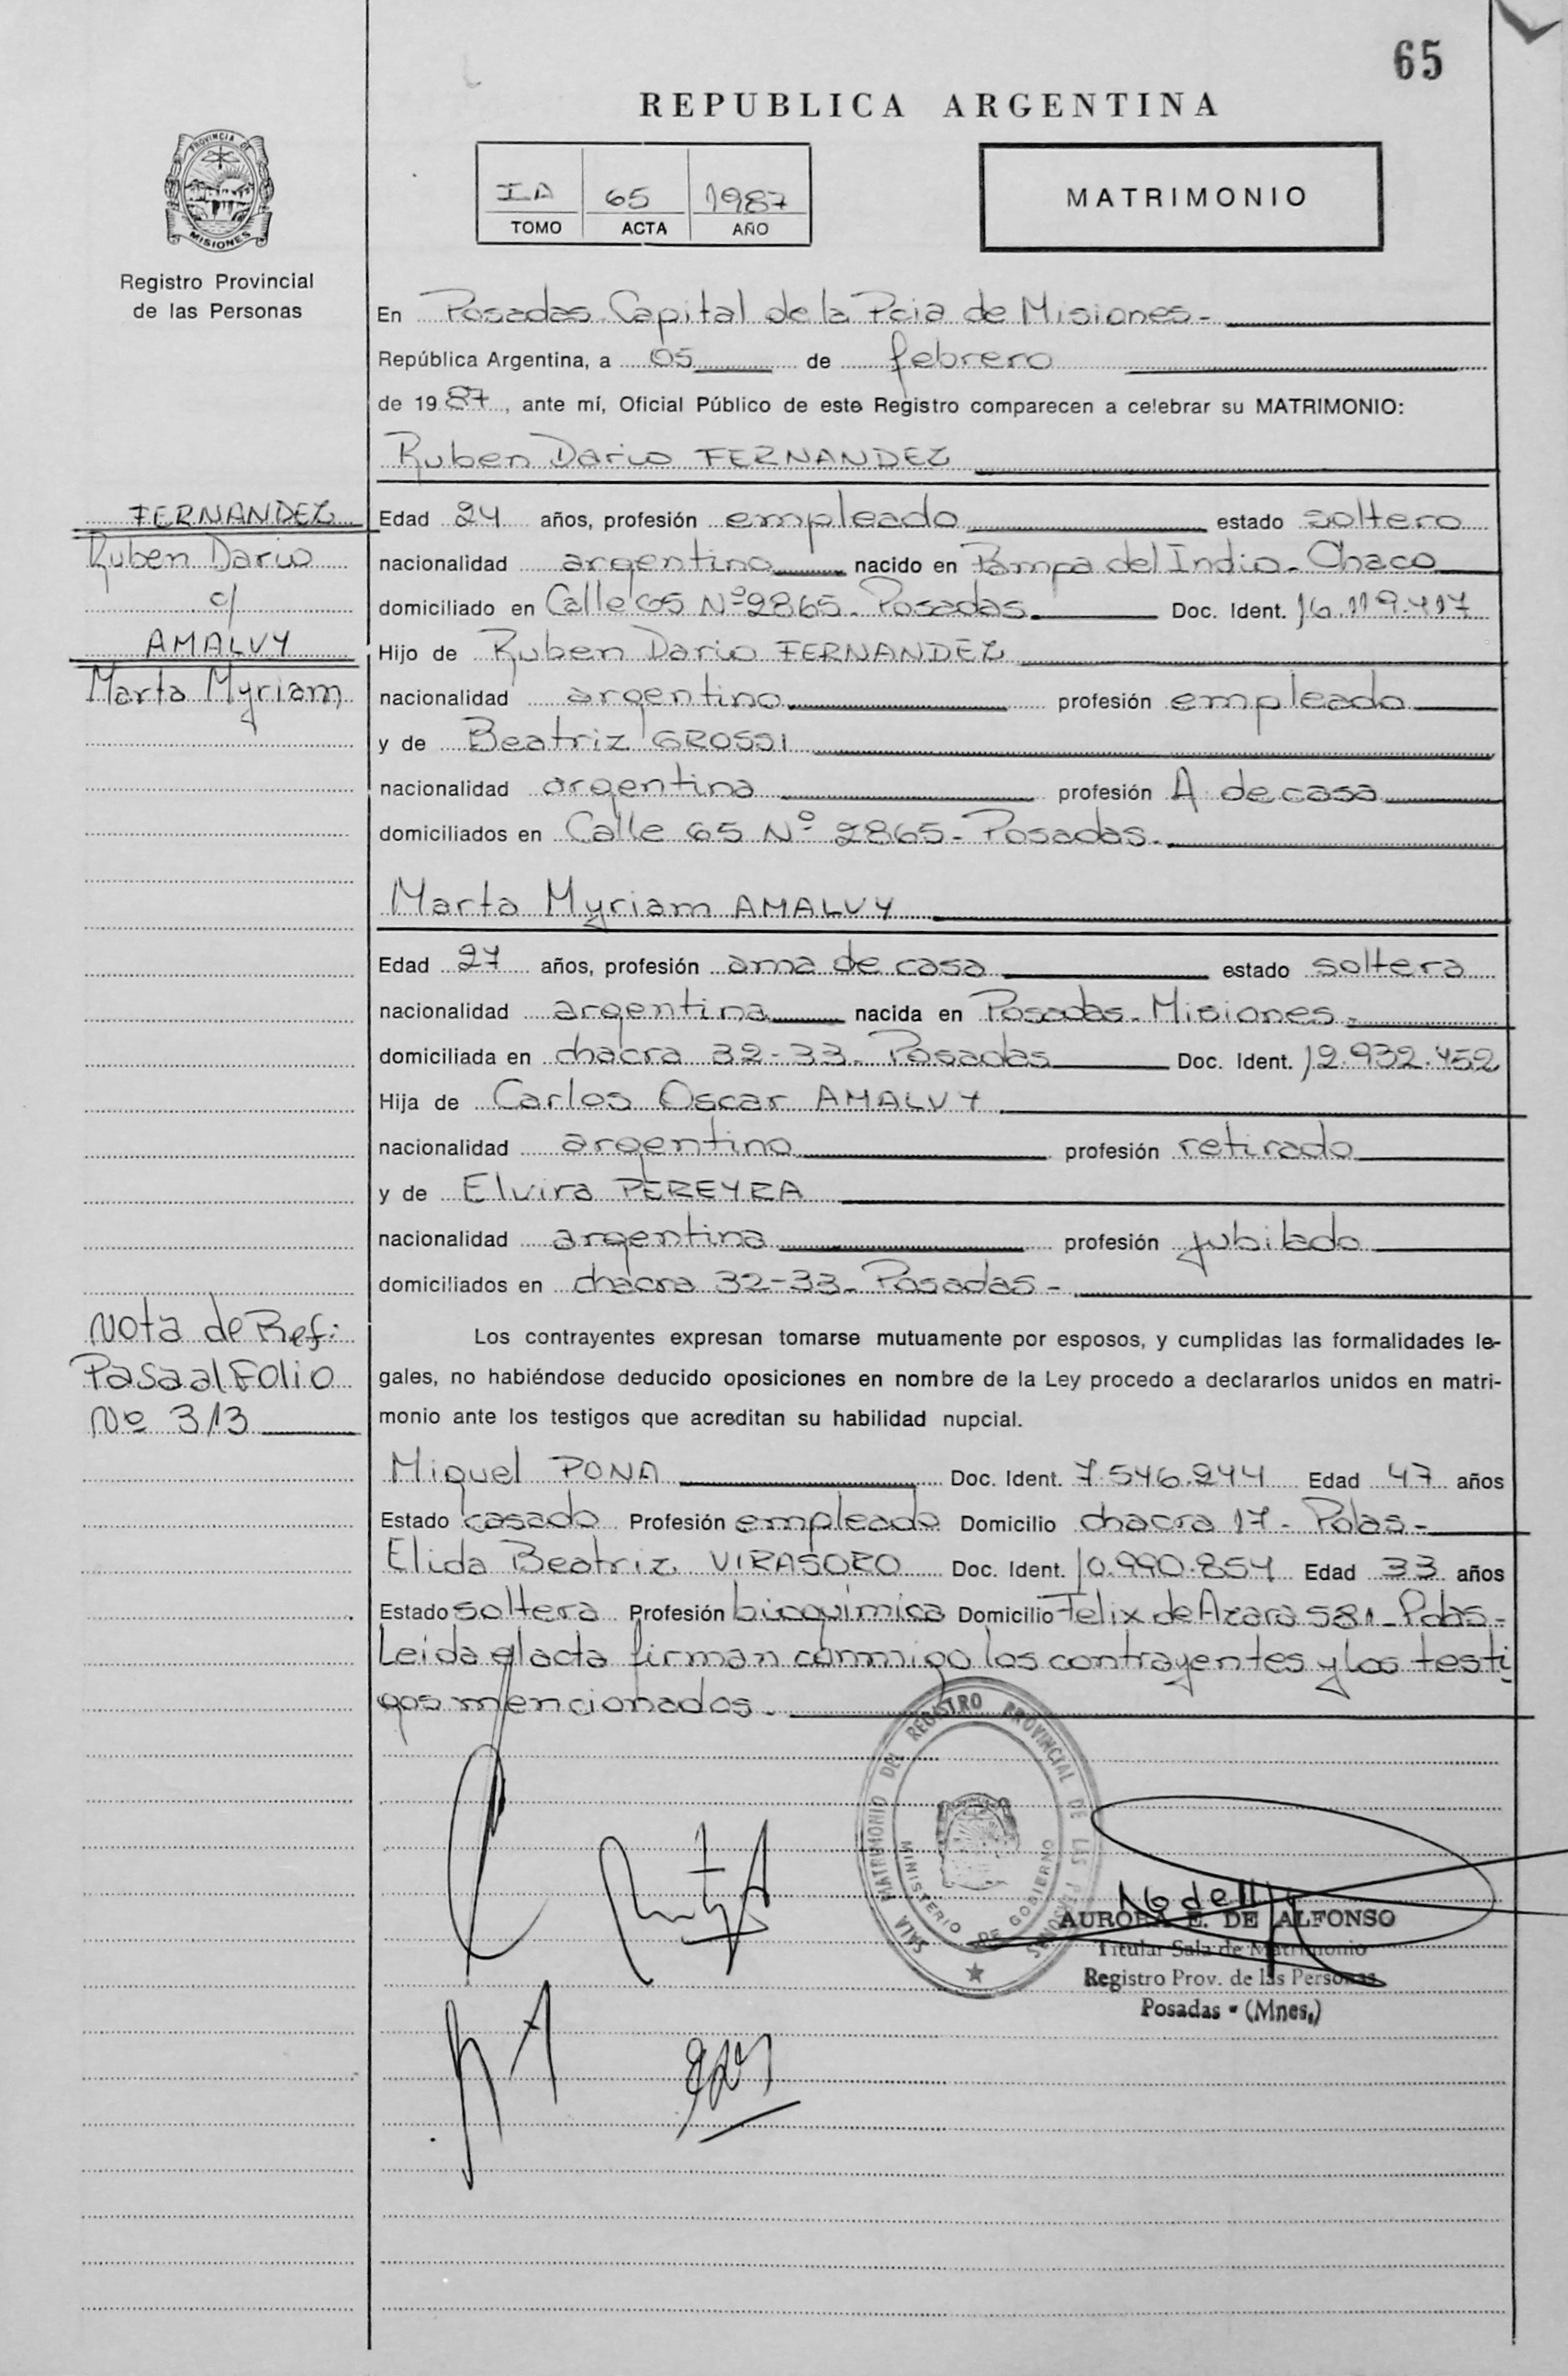 65
REPUBLICA ARGENTINA
PROVINCIA DE
MISIONES
Registro Provincial
de las Personas
IA 65 1987
TOMO ACTA AÑO
MATRIMONIO
En Posadas Capital de la Pcia de Misiones-
República Argentina, a 05 de febrero
de 1987, ante mí, Oficial Público de este Registro comparecen a celebrar su MATRIMONIO:
Ruben Dario FERNANDEZ
FERNANDEZ
Ruben Dario
c/
AMALVY
Marta Myriam
Edad 24 años, profesión empleado estado soltero
nacionalidad argentino nacido en Pampa del Indio-Chaco
domiciliado en Calle 65 Nº2865-Posadas Doc. Ident. 16.119.417
Hijo de Ruben Dario FERNANDEZ
nacionalidad argentino profesión empleado
y de Beatriz GROSSI
nacionalidad argentina profesión A de casa
domiciliados en Calle 65 Nº 2865-Posadas.
Marta Myriam AMALVY
Edad 27 años, profesión ama de casa estado soltera
nacionalidad argentina nacida en Posadas-Misiones-
domiciliada en chacra 32-33-Posadas Doc. Ident. 12.932.452
Hija de Carlos Oscar AMALVY
nacionalidad argentino profesión retirado
y de Elvira PEREYRA
nacionalidad argentina profesión jubilado
domiciliados en chacra 32-33-Posadas-
Nota de Ref:
Pasa al Folio
Nº 313
Los contrayentes expresan tomarse mutuamente por esposos, y cumplidas las formalidades le-
gales, no habiéndose deducido oposiciones en nombre de la Ley procedo a declararlos unidos en matri-
monio ante los testigos que acreditan su habilidad nupcial.
Miguel PONA Doc. Ident. 7.546.244 Edad 47 años
Estado casado Profesión empleado Domicilio chacra 17-Pdas-
Elida Beatriz VIRASORO Doc. Ident. 10.990.854 Edad 33 años
Estado soltera Profesión bioquímica Domicilio Felix de Azara 581-Pdas-
Leida el acta firman conmigo los contrayentes y los testi
gos mencionados.
SALA MATRIMONIO DEL REGISTRO PROVINCIAL DE LAS PERSONAS
MINISTERIO DE GOBIERNO
AURORA E. DE ALFONSO
Titular Sala de Matrimonio
Registro Prov. de las Personas
Posadas - (Mnes.)